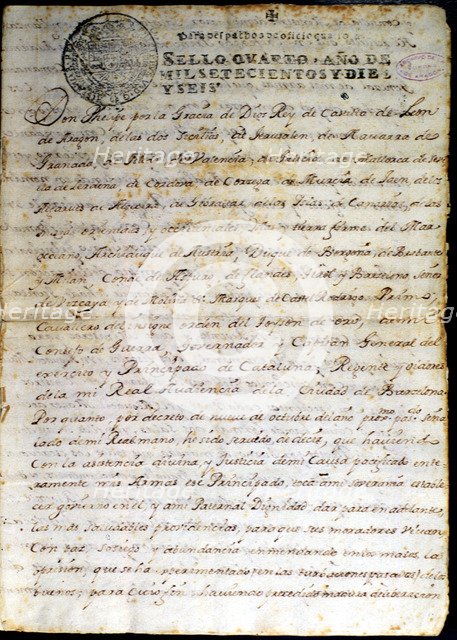 Para despachos de oficio
SELLO QVARTO, AÑO DE
MIL SETECIENTOS Y DIEZ
Y SEIS.
Don Phelipe por la Gracia de Dios Rey de Castilla de Leon
de Aragon, de las dos Sicilias, de Jerusalen, de Navarra de
Granada, de Toledo de Valencia, de Galicia de Mallorca de Sevi
lla de Serdeña de Cordova de Corcega de Murcia de Jaen de los
Algarves de Algecira de Gibraltar, de las Islas de Canarias, de las
Indias orientales y occidentales Islas y tierra firme del Mar
occeano, Archiduque de Austria, Duque de Borgoña, de Brabante
y Milan Conde de Aspurg de Flandes Tirol y Barcelona Señor
de Vizcaya y de Molina Marques de Castel Rodrigo Primo,
Cavallero del insigne orden del Toyson de oro, de mi
Consejo de Guerra, Governador y Capitan General del
exercito y Principado de Cataluña; Regente y oidores
de la mi Real Audiencia de la Ciudad de Barzelona.
Por quanto por decreto de nueve de octubre del año prox.mo pas.do seña
lado de mi Real mano, he sido servido de decir, que haviendo
Con la asistencia divina, y Justicia de mi Causa pacificado ente
ramente mis Armas ese Principado, toca a mi soverania estable
cer govierno en el, y a mi Paternal Dignidad dar para en adelante,
las mas saludables providencias, para que sus moradores vivan
Con paz, sosiego y abundancia enmendando en los malos la
opresion, que se ha experimentado en las turbaciones pasadas de los
buenos; para cuio fin haviendo precedido madura deliberacion
heritage-images.com
Heritage-Images